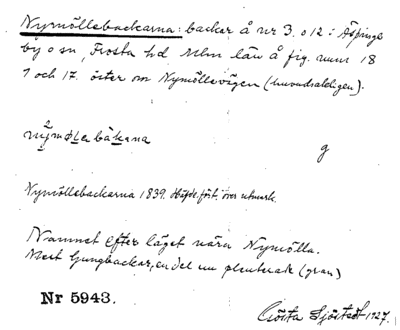 Nymöllebackarna: backar å nr 3. o 12 i Äspinge
by o sn, Frosta hd Mlm län å fig. num 18
1 och 17. öster om Nymöllevägen (huvudsakligen).
nymøLabakana
g
Nymöllebackarna 1839. Höjdefört. över utmark.
Namnet efter läget nära Nymölla.
Mest ljungbackar, en del nu planterade (gran)
Nr 5943.
Gösta Sjöstedt 1927.